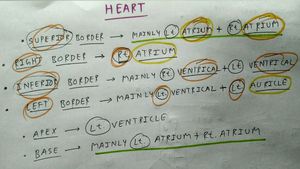 HEART
• SUPERIOR BORDER → MAINLY Lt ATRIUM + Rt. ATRIUM
• RIGHT BORDER → Rt ATRIUM
• INFERIOR BORDER → MAINLY Rt VENTRICAL + Lt VENTRICAL
• LEFT BORDER → MAINLY Lt VENTRICAL + Lt AURICLE
• APEX → Lt. VENTRICLE
• BASE → MAINLY Lt. ATRIUM + Rt. ATRIUM